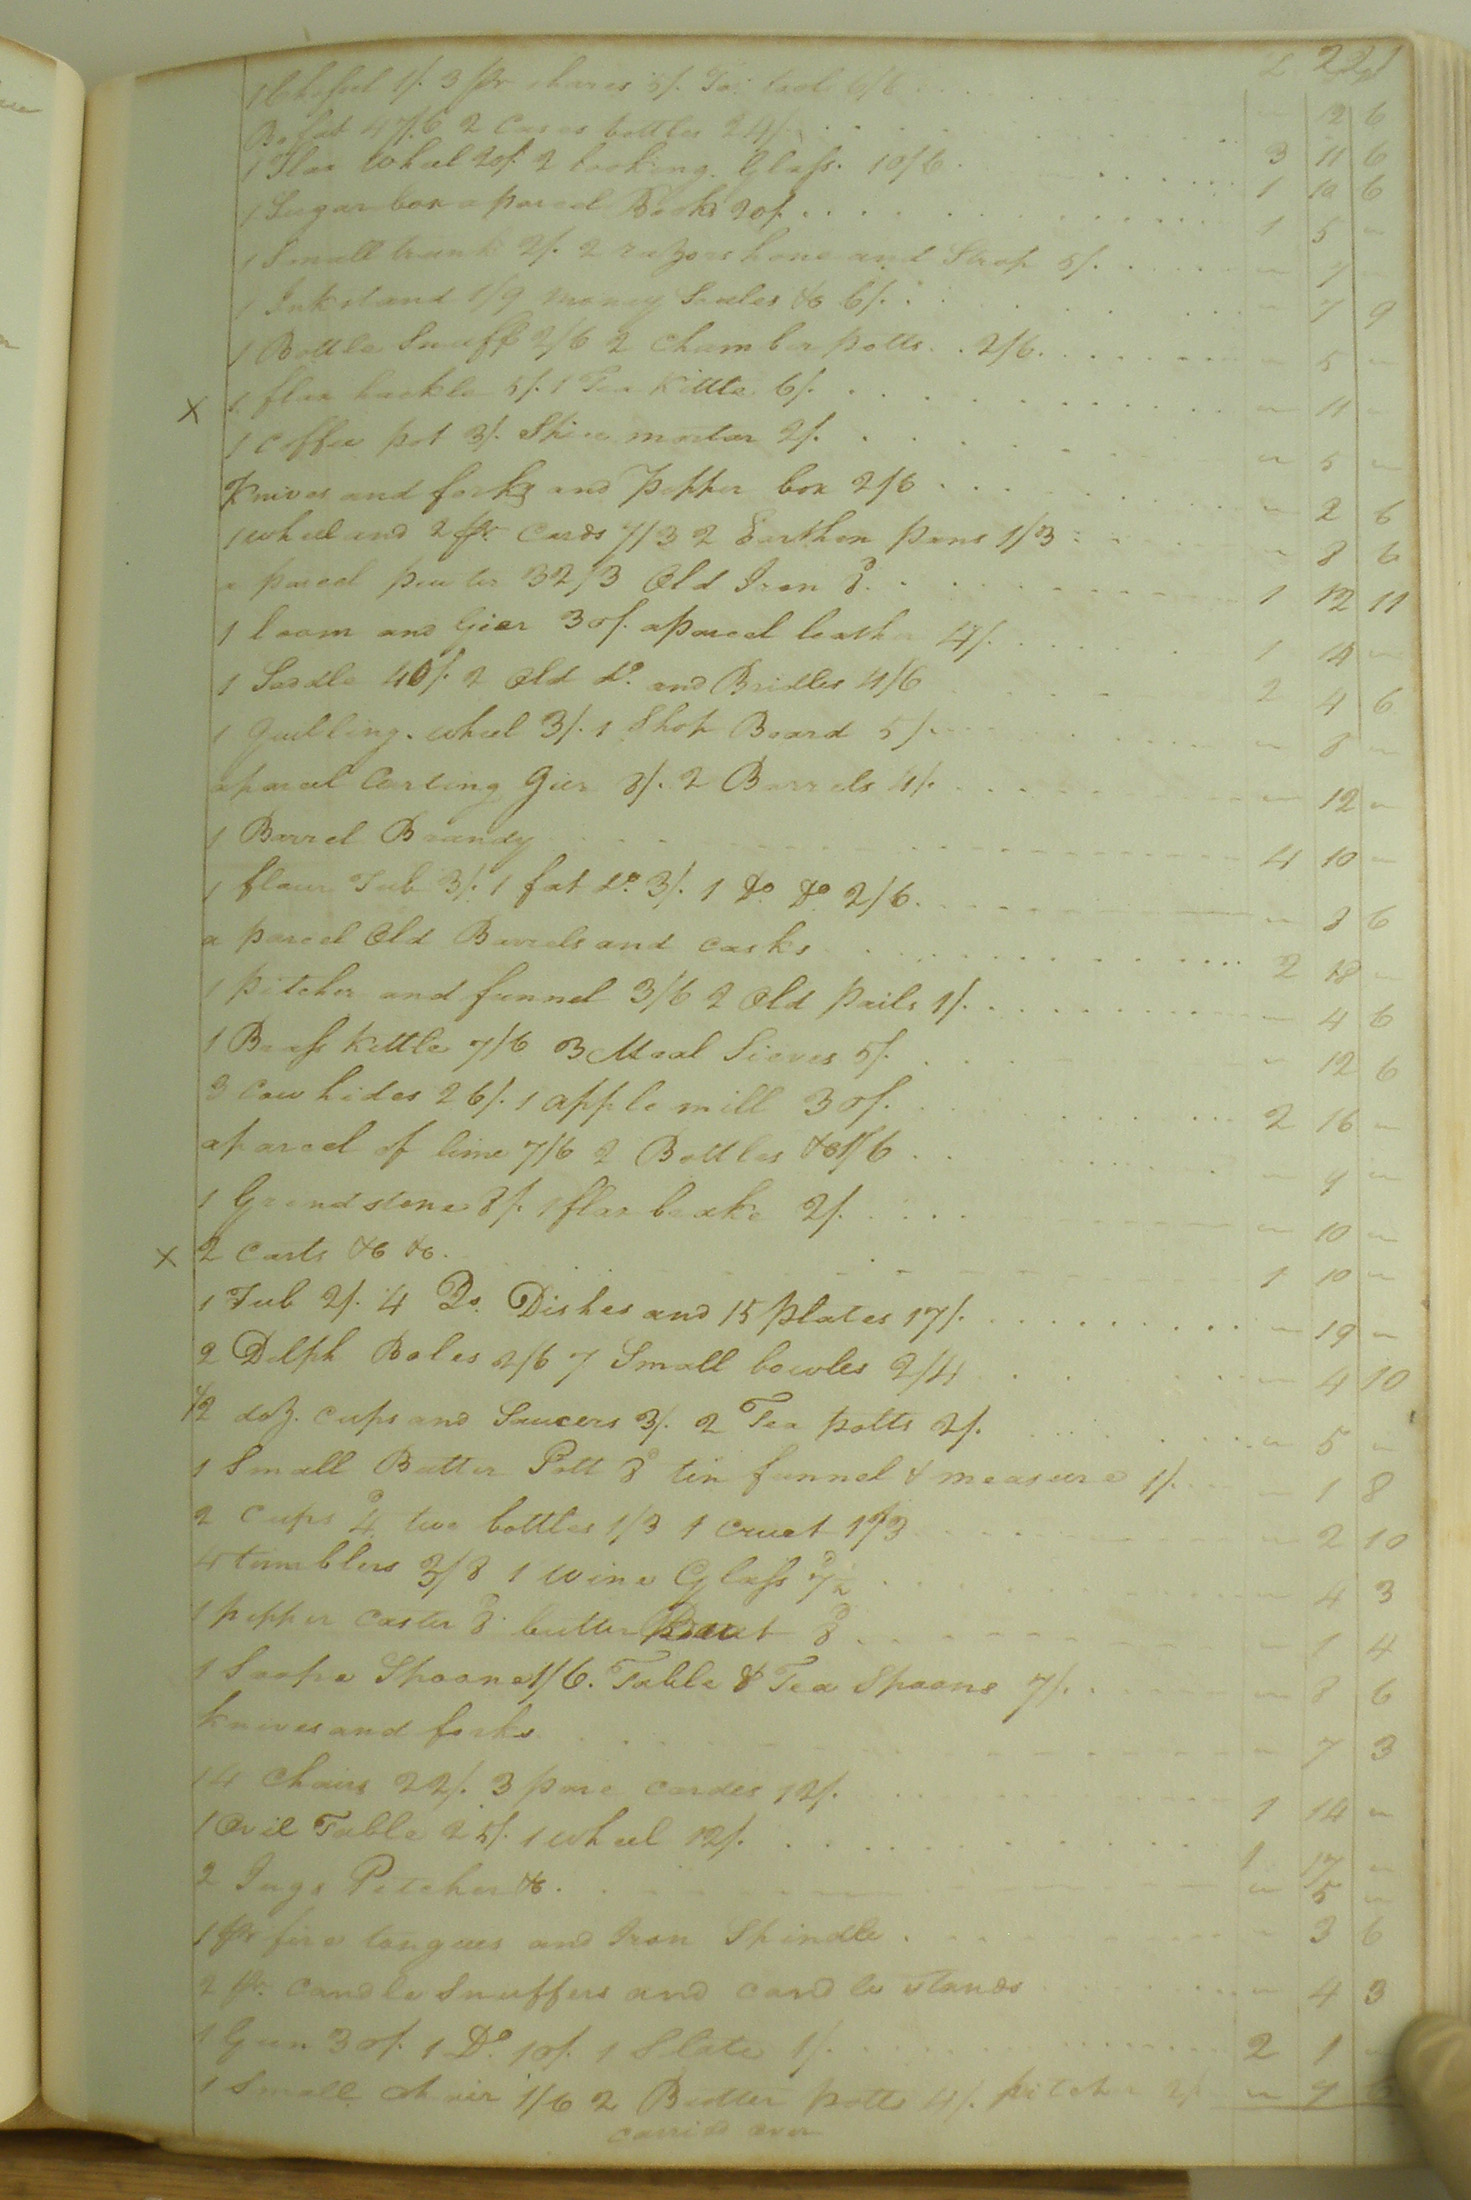 £ 221
1 Chissel 1/. 3 pr shares 5/. 6/6 " 12 6
Bofat 47/6 2 Cases bottles 24/. 3 11 6
1 Flax wheel 20/. 2 looking Glass. 10/6 1 10 6
1 Sugar box a parcel Books 20/. 1 5 "
1 Small trunk 2/. 2 razors hone and Strop 5/. " 7 "
1 Inkstand 1/9 Money Scales &c 6/. " 7 9
1 Bottle Snuff 2/6 2 Chamber potts 2/6. " 5 "
X 1 flax hackle 5/. 1 Tea Kittle 6/. " 11 "
1 Coffee pot 3/. Spice mortar 2/. " 5 "
Knives and forks and Pepper box 2/6 " 2 6
1 wheel and 2 pr. Cards 7/3 2 Earthen pans 1/3 " 8 6
a parcel pewter 32/3 Old Iron 8d. 1 12 11
1 loom and Gier 30/. a parcel leather 4/. 1 14 "
1 Saddle 40/. 2 Old Do. and Bridles 4/6 2 4 6
1 Quilling. wheel 3/. 1 Shop Board 5/. " 8 "
a parcel Carting Gier 8/. 2 Barrels 4/. " 12 "
1 Barrel Brandy 4 10 "
1 flour Tub 3/. 1 fat Do. 3/. 1 Do. Do. 2/6. " 8 6
a parcel Old Barrels and casks 2 18 "
1 pitcher and funnel 3/6 2 Old pails 1/. " 4 6
1 Brass Kittle 7/6 3 Meal Sieves 5/. " 12 6
3 Cow hides 26/. 1 apple mill 30/. 2 16 "
a parcel of lime 7/6 2 Bottles &c 1/6 " 9 "
1 Grindstone 8/. 1 flax brake 2/. " 10 "
X 2 Carts &c &c. 1 10 "
1 Tub 2/. 4 Do. Dishes and 15 plates 17/. " 19 "
2 Delph Boles 2/6 7 Small bowles 2/4 " 4 10
1/2 doz. cups and Saucers 3/. 2 Tea potts 2/. " 5 "
1 Small Butter Pott 8d tin funnel & measure 1/. " 1 8
2 Cups 4d two bottles 1/3 1 cruet 1/3 " 2 10
4 tumblers 3/8 1 wine Glass 7d 1/2 " 4 3
1 pepper caster 8d butter 8d " 1 4
1 Soope Spoone 1/6. Table & Tea Spoons 7/. " 8 6
Knives and forks " 7 3
14 Chairs 22/. 3 pare cardes 12/. 1 14 "
1 Ovil Table 25/. 1 wheel 12/. 1 17 "
2 Jugs Pitcher &c. " 5 "
1 pr fire tongues and Iron Spindle. " 3 6
2 pr. Candle Snuffers and candle stands " 4 3
1 Gun 30/. 1 Do. 10/. 1 Slate 1/. 2 1 "
1 Small Chair 1/6 2 Butter potts 4/. pitcher 2/. " 7 6
carried over